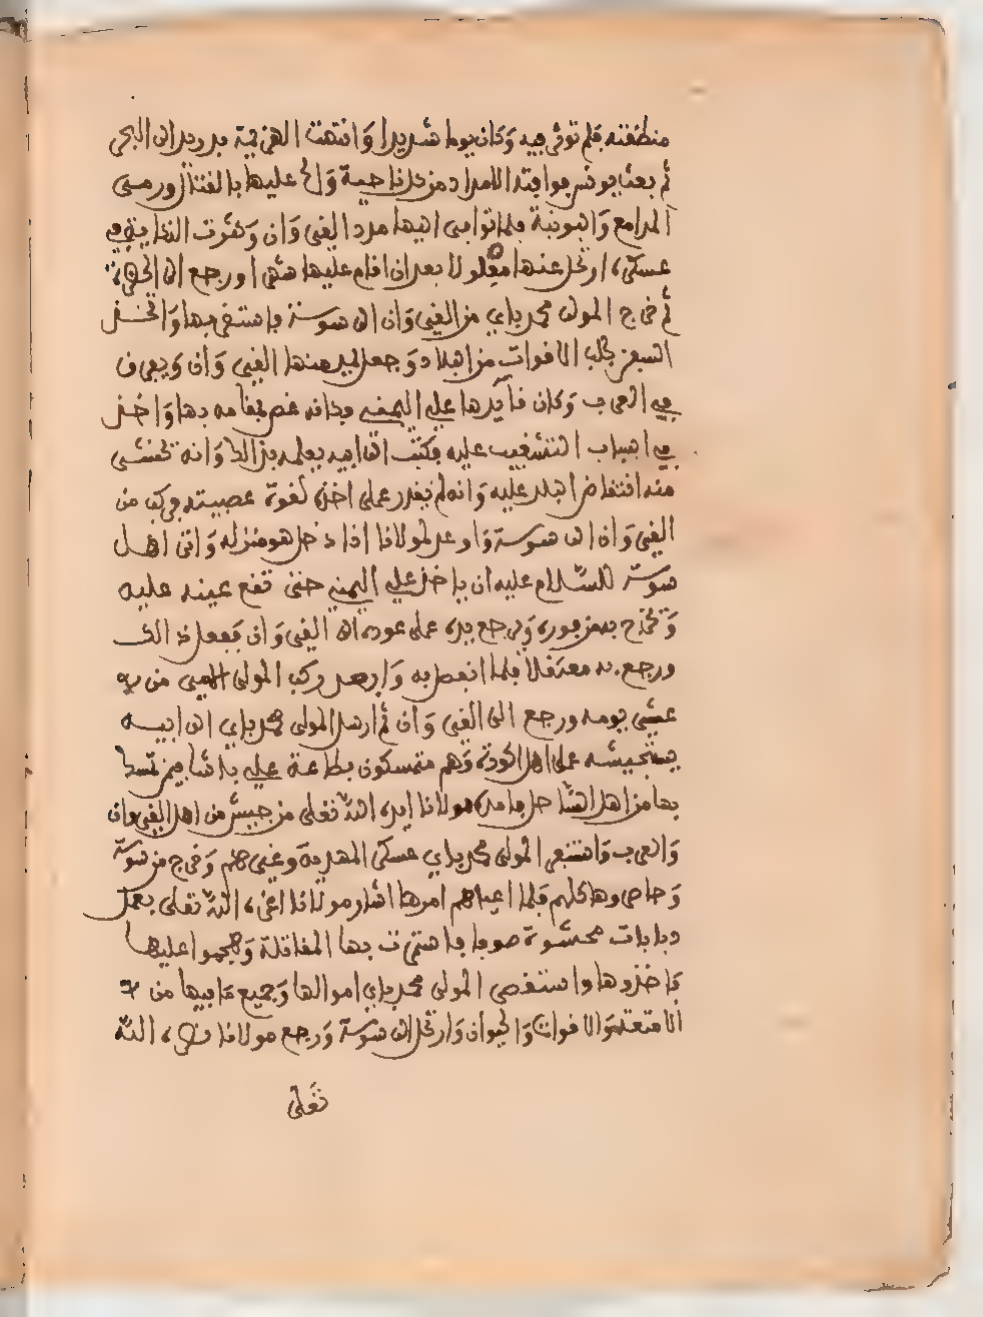 منطقته فلم توثر فيه وكان يوما شديدا وانتهت الهزيمة بدويرات البحر
ثم بعث يونس فوافته الامداد من كل ناحية والح عليها بالقتال ورمى
المدافع والبونبة فلما توافى اليها مدد القيروان وكثرت النكاية في
عسكره ارتحل عنها مفلولا بعد ان اقام عليها شهرا ورجع الى الحضرة
ثم خرج المولى محمد باي من القيروان الى سوسة فاستقر بها واتخذ
السفن لجلب الاقوات من البلاد وجعل يمير منها القيروان ويعرف
في العرب وكان قايدها علي اليمني فكانه غص بمقامه بها واخذ
في اسباب التشغيب عليه فكتب الى ابيه يعلمه بذالك وانه يخشى
منه انتقاض البلد عليه وانه لم يقدر على اخذه لقوة عصبيته فركب من
القيروان الى سوسة واوعد لمولانا اذا دخل هو منزله واتى اهل
سوسة للسلام عليه ان ياخذ علي اليمني حتى تقع عينه عليه
ويخرج به من فوره ويرجع بيده على عوده الى القيروان ففعل ذالك
ورجع به معتقلا فلما انفصل به وابعد ركب المولى حسين من
عشي يومه ورجع الى القيروان ثم ارسل المولى محمد باي الى ابيه
يستجيشه على اهل وهم متمسكون بطاعة علي باشا فيمن تمسك
بها من اهل الساحل فامده مولانا ايده الله تعلى من جيش من اهل القيروان
والعرب واستنفر المولى محمد باي عسكر المهدية وغيرهم وخرج من سوسة
وحاصروها كلهم فلما اعياهم امرها اشار مولانا اعزه الله تعلى بعمل
دبابات محشوة صوفا فاستترت بها المقاتلة وهجموا عليها
فاخذوها واستقصى المولى محمد باي اموالها وجميع ما فيها من
الامتعة والاقوات والحيوان وارتحل الى سوسة ورجع مولانا نصره الله
تعلى